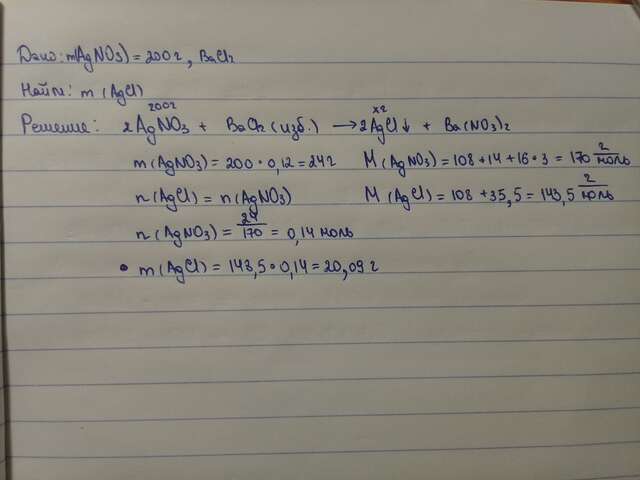 Дано: m(AgNO3) = 200 г, BaCl2
Найти: m (AgCl)
200г x г
Решение: 2AgNO3 + BaCl2 (изб.) → 2AgCl↓ + Ba(NO3)2
m(AgNO3) = 200 · 0,12 = 24 г M(AgNO3) = 108 + 14 + 16 · 3 = 170 г/моль
n(AgCl) = n(AgNO3) M(AgCl) = 108 + 35,5 = 143,5 г/моль
n(AgNO3) = 24/170 = 0,14 моль
• m(AgCl) = 143,5 · 0,14 = 20,09 г